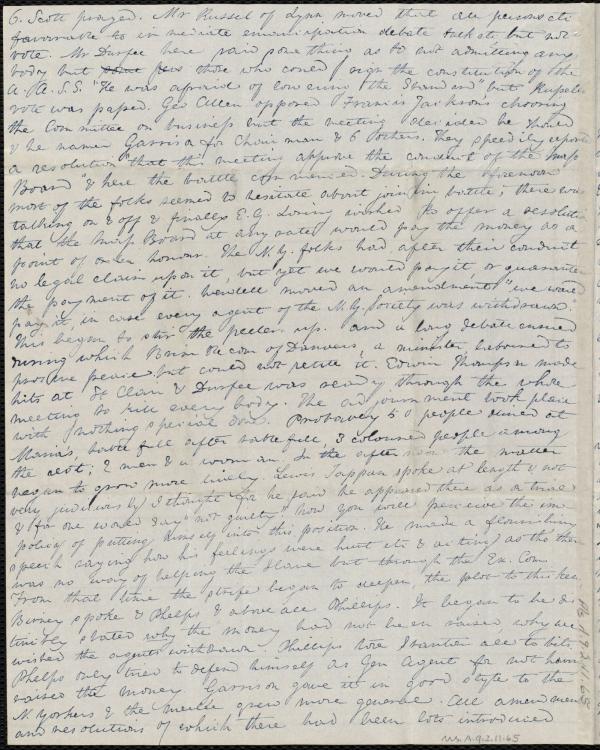 G. Scott prayed. Mr Russel of Lynn moved that all persons etc
favorable to immediate emancipation debate & shout but not
vote. Mr Durfee here said something as to not admitting any
body but those who could sign the constitution of the
A. A. S. S. "He was afraid of lowering the Standard" but Russels
vote was passed. Geo Allen opposed Francis Jacksons choosing
the Committee on business but the meeting decided he should
& he named Garrison for Chairman & 6 others. They speedily reported
a resolution "that this meeting approve the conduct of the Mass
Board" & here the battle commenced. During the afternoon
most of the folks seemed to hesitate about joining battle; there was
talking on & off & finally E. G. Loring wished to offer a resolution
that the Mass Board at any rate would pay the money as a
point of honour. The N.Y. folks had, after their conduct
no legal claim upon it, but yet we would pay it, or guarantee
the payment of it. Wendell moved an amendment "we would
pay it, in case every agent of the N.Y. Society was withdrawn.
This began to stir the people up. and a long debate ensued
during which of Danvers, a minister laboured to
procure peace but could not it. Edwin Thompson made
hits at St Clair & Durfee was ready through the whole
meeting to kill every body. The adjournment took place
with nothing special done. Probably 50 people dined at
Marias, table full after table full, 3 coloured people among
the rest; 2 men & a woman. In the afternoon the matter
began to grow more lively. Lewis Tappan spoke at length & not
very judiciously I thought for he said he appeared there as on trial
& for one would say "not guilty" now you will perceive the im-
policy of putting himself into this position. He made a flourishing
speech saying how his feelings were hurt etc & acting as tho there
was no way of helping the Slave but through the Ex. Com.
From that time the strife began to deepen, the plot to thicken
Birney spoke & Phelps & above all Phillips. It began to be dis-
tinctly stated why the money had not been raised why we
wished the agents withdrawn. Phillips tore Stanton all to bits,
Phelps only tried to defend himself as Gen Agent for not having
raised the money Garrison gave it in good style to the
N. Yorkers & the melee grew more general. All amendments
and resolutions of which there had been lots introduced
Ms. A. 9. 2. 11. 65
Ms. A. 9. 2. 11. 65